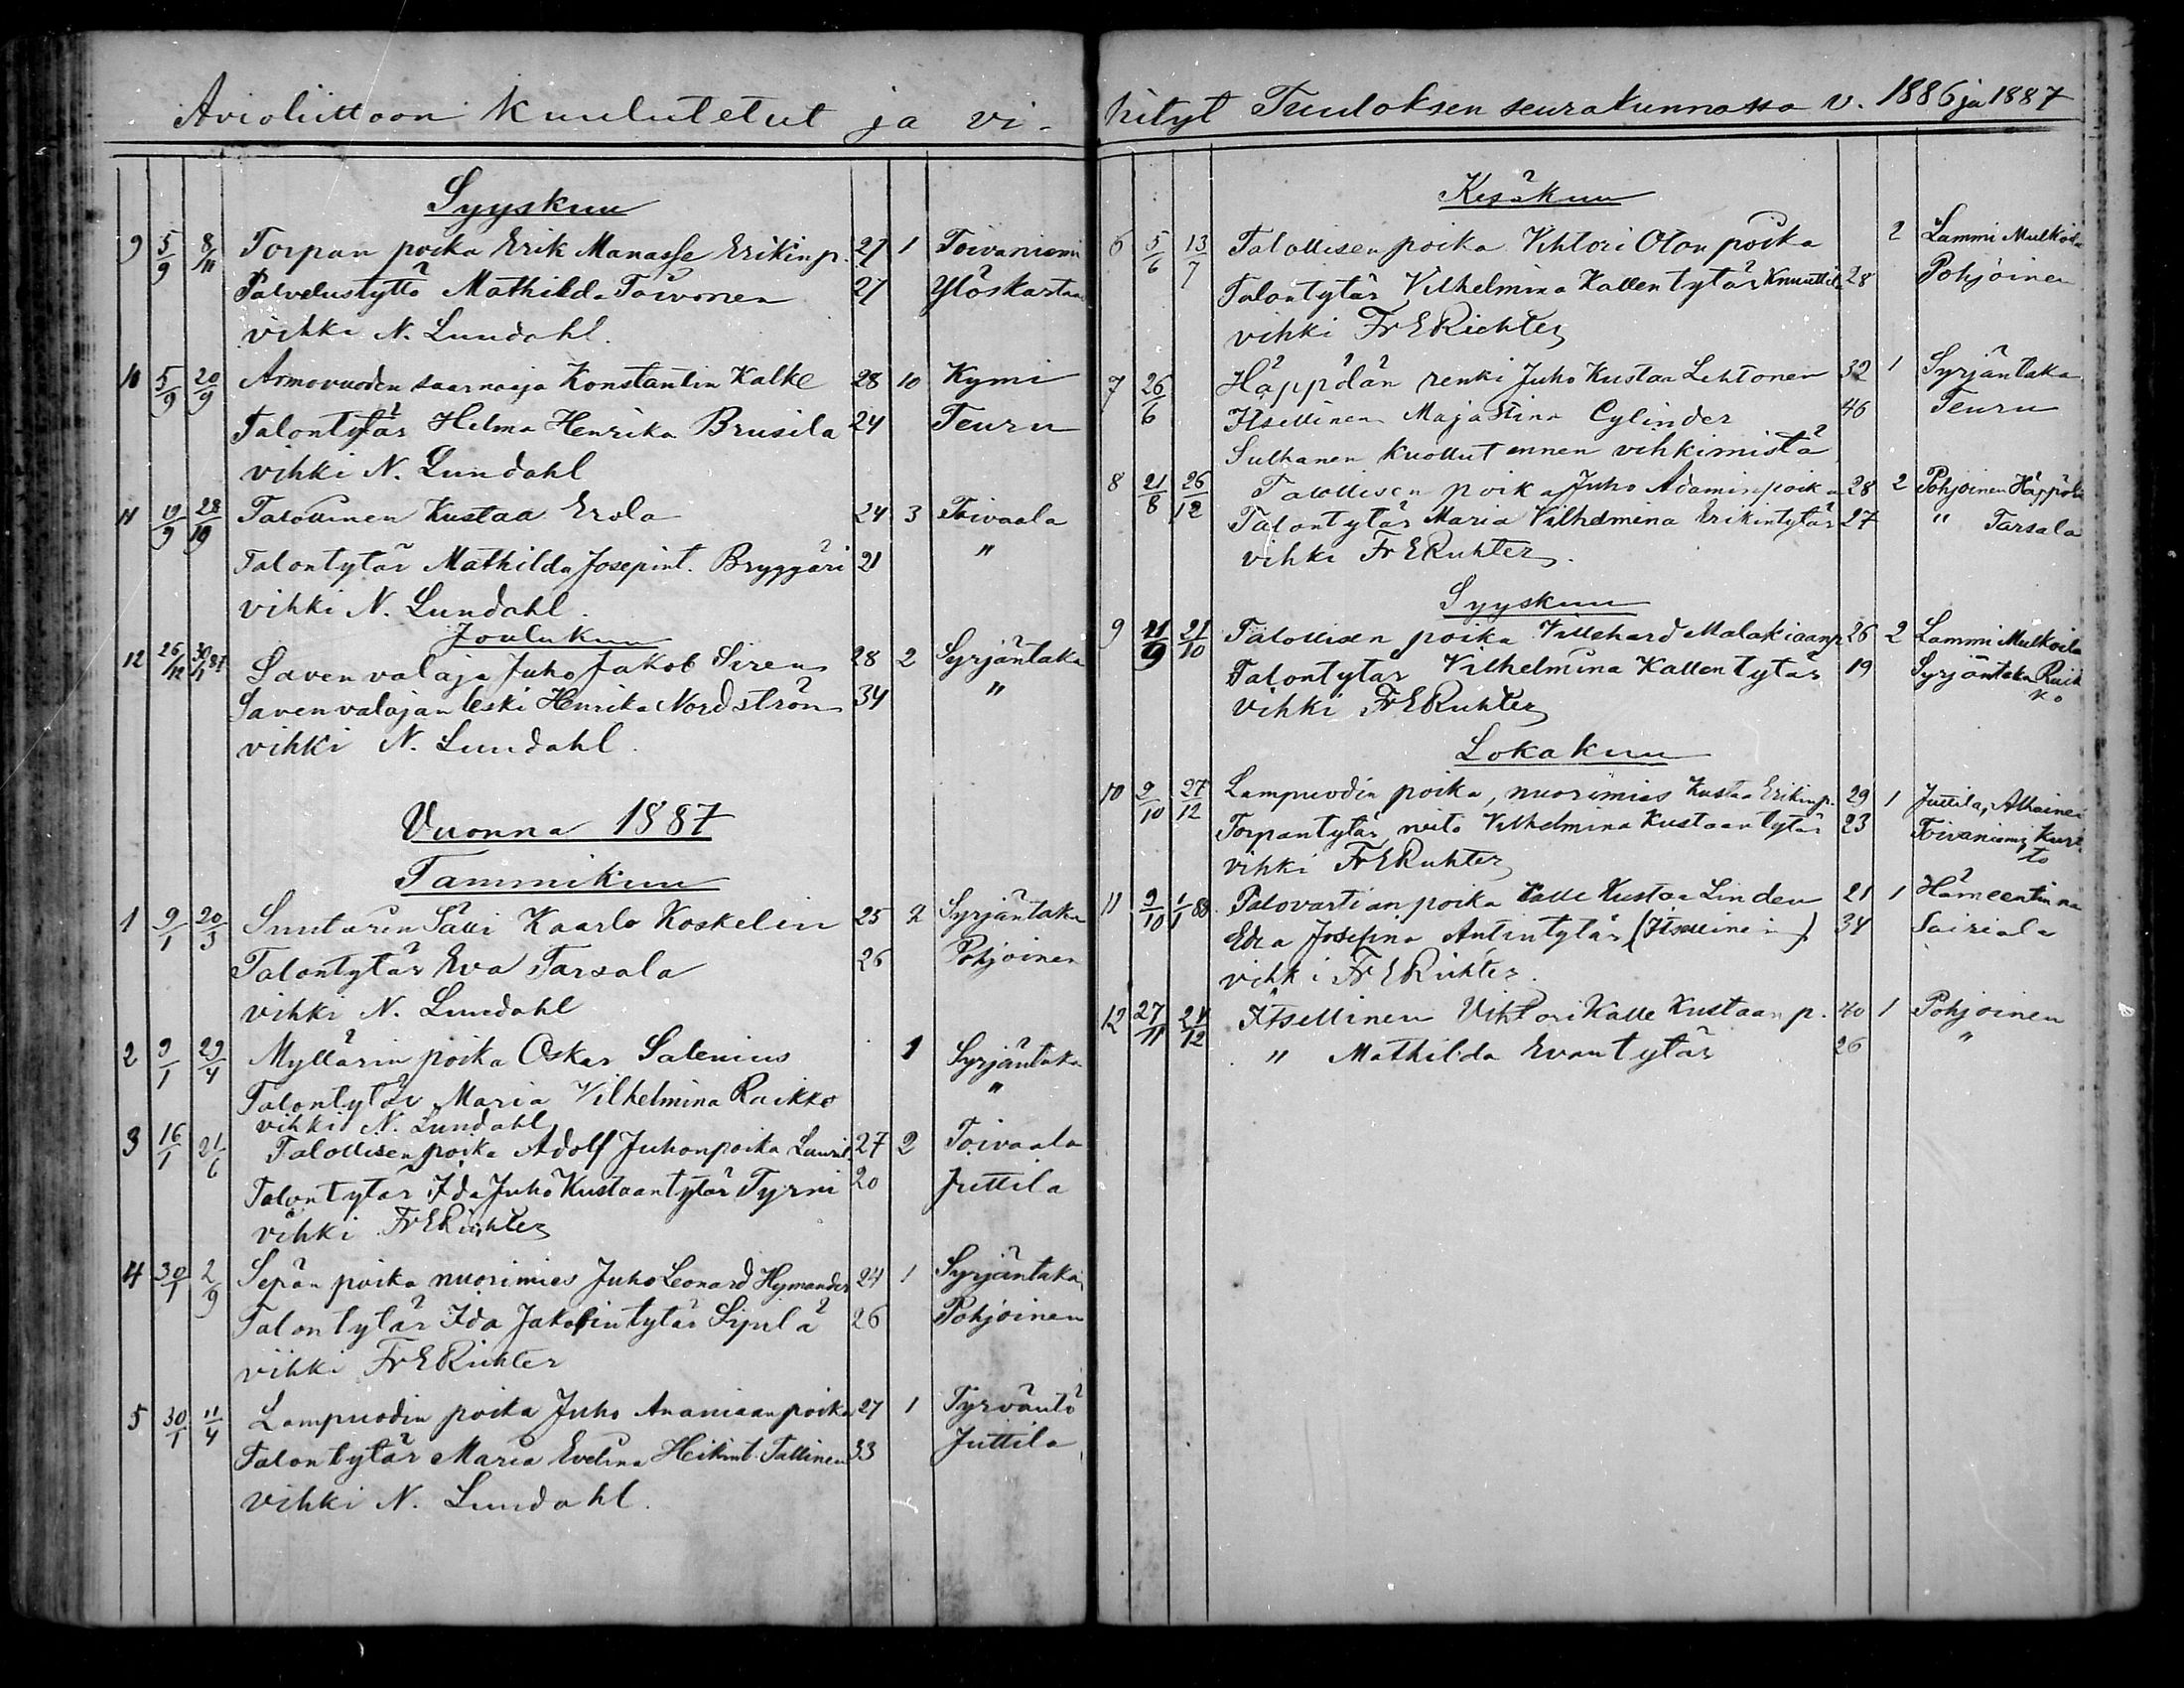 Avioliittoon Kuulutetut ja vi-
Syyskuu
9 5/9 8/11 Torpan poika Erik Manasse Erikinp. 27 1 Toivaniemi
Palvelustyttö Mathilda Toivonen 27 Ylöskartano
vihki N. Lundahl.
10 5/9 20/9 Armovuoden saarnaaja Konstantin Kalke 28 10 Kymi
Talontytär Helma Henrika Brusila 24 Teuru
vihki N. Lundahl
11 19/9 28/19 Talollinen Kustaa Erola 24 3 Toivaala
Talontytär Mathilda Josepint. Bryggäri 21 "
vihki N. Lundahl.
Joulukuu
12 26/12 30/1 87 Savenvalaja Juho Jakob Siren 28 2 Syrjäntaka
Savenvalajan leski Henrika Nordström 34 "
vihki N. Lundahl.
Vuonna 1887
Tammikuu
1 9/1 20/3 Suutarin Sälli Kaarlo Koskelin 25 2 Syrjäntaka
Talontytär Eva Tarsala 26 Pohjoinen
vihki N. Lundahl
2 9/1 29/4 Myllärin poika Oskar Salenius 1 Syrjäntaka
Talontytär Maria Vilhelmina Raikko "
vihki N. Lundahl
3 16/1 21/6 Talollisen poika Adolf Juhonpoika 27 2 Toivaala
Talontytär Ida Juho Kustaantytär Tyrni 20 Juttila
vihki Fr E Richter
4 30/1 2/9 Sepän poika nuorimies Juho Leonard Hymander 24 1 Syrjäntaka
Talontytär Ida Jakobintytär Sipilä 26 Pohjoinen
vihki Fr E Richter
5 30/1 11/4 Lampuodin poika Juho Ananiaanpoika 27 1 Tyrväntö
Talontytär Maria Evelina Heikint. Tallinen 33 Juttila
vihki N. Lundahl.
hityt Tuuloksen seurakunnassa v. 1886 ja 1887
Kesäkuu
6 5/6 13/7 Talollisen poika Vihtori Oton poika 2 Lammi Mulkoila
Talontytär Vilhelmina Kallentytär Knuuttila 28 Pohjoinen
vihki Fr E Richter
7 26/6 Häppölän renki Juho Kustaa Lehtonen 32 1 Syrjäntaka
Itsellinen Maja Stina Cylinder 46 Teuru
Sulhanen kuollut ennen vihkimistä
8 21/8 26/12 Talollisen poika Juho Adaminpoika 28 2 Pohjoinen Häppölä
Talontytär Maria Vilhelmina Erikintytär 27 " Tarsala
vihki Fr E Richter.
Syyskuu
9 11/9 21/10 Talollisen poika Villehard Malakiaanp 26 2 Lammi Mulkoila
Talontytär Vilhelmina Kallentytär 19 Syrjäntaka Raik
ko
vihki Fr E Richter
Lokakuu
10 9/10 27/12 Lampuodin poika, nuorimies Kustaa Erikinp. 29 1 Juttila, Alhainen
Torpantytär, neito Vilhelmina Kustaantytär 23 Toivaniemi,
vihki Fr E Richter
11 9/10 1/1 88. Palovartian poika Kalle Kustaa Linden 21 1 Hämeenlinna
Eva Josefina Antintytär (Itsellinen) 34 Sairiala
vihki Fr E Richter.
12 27/11 24/12 Itsellinen Vihtori Kalle Kustaan p. 40 1 Pohjoinen
" Mathilda Evantytär 26 "